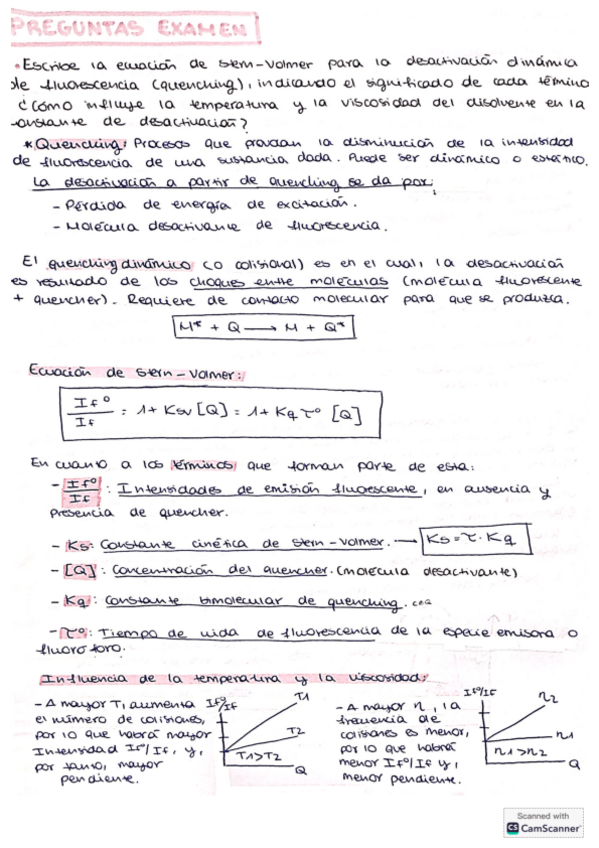 PREGUNTAS EXAMEN
• Escribe la ecuación de Stern-Volmer para la desactivación dinámica
de fluorescencia (quenching), indicando el significado de cada término
¿Cómo influye la temperatura y la viscosidad del disolvente en la
constante de desactivación?
* Quenching: Procesos que provocan la disminución de la intensidad
de fluorescencia de una sustancia dada. Puede ser dinámico o estático.
La desactivación a partir de quenching se da por:
- Pérdida de energía de excitación.
- Molécula desactivante de fluorescencia.
El quenching dinámico (o colisional) es en el cual, la desactivación
es resultado de los choques entre moléculas (molécula fluorescente
+ quencher). Requiere de contacto molecular para que se produzca.
M* + Q → M + Q*
Ecuación de Stern-Volmer:
If°/If = 1 + Ksv [Q] = 1 + Kq τ° [Q]
En cuanto a los términos que forman parte de esta:
- If°/If : Intensidades de emisión fluorescente, en ausencia y
presencia de quencher.
- Ks: Constante cinética de Stern-Volmer. → Ks = τ · Kq
- [Q]: Concentración del quencher. (molécula desactivante)
- Kq: Constante bimolecular de quenching.
- τ°: Tiempo de vida de fluorescencia de la especie emisora o
fluoróforo.
Influencia de la temperatura y la viscosidad:
- A mayor T, aumenta
el número de colisiones,
por lo que habrá mayor
Intensidad If°/If, y,
por tanto, mayor
pendiente.
If°/If
T1
T2
T1>T2
Q
- A mayor η, la
frecuencia de
colisiones es menor,
por lo que habrá
menor If°/If y,
menor pendiente.
If°/If
η2
η1
η1>η2
Q
Scanned with
CS CamScanner